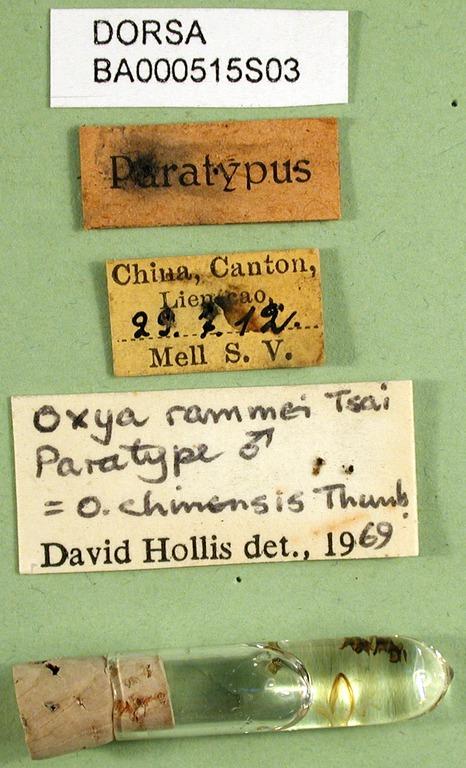 DORSA
BA000515S03
Paratypus
China, Canton,
29. 7. 12.
Mell S. V.
Oxya rammei Tsai
Paratype ♂
= O. chinensis Thunb.
David Hollis det., 1969